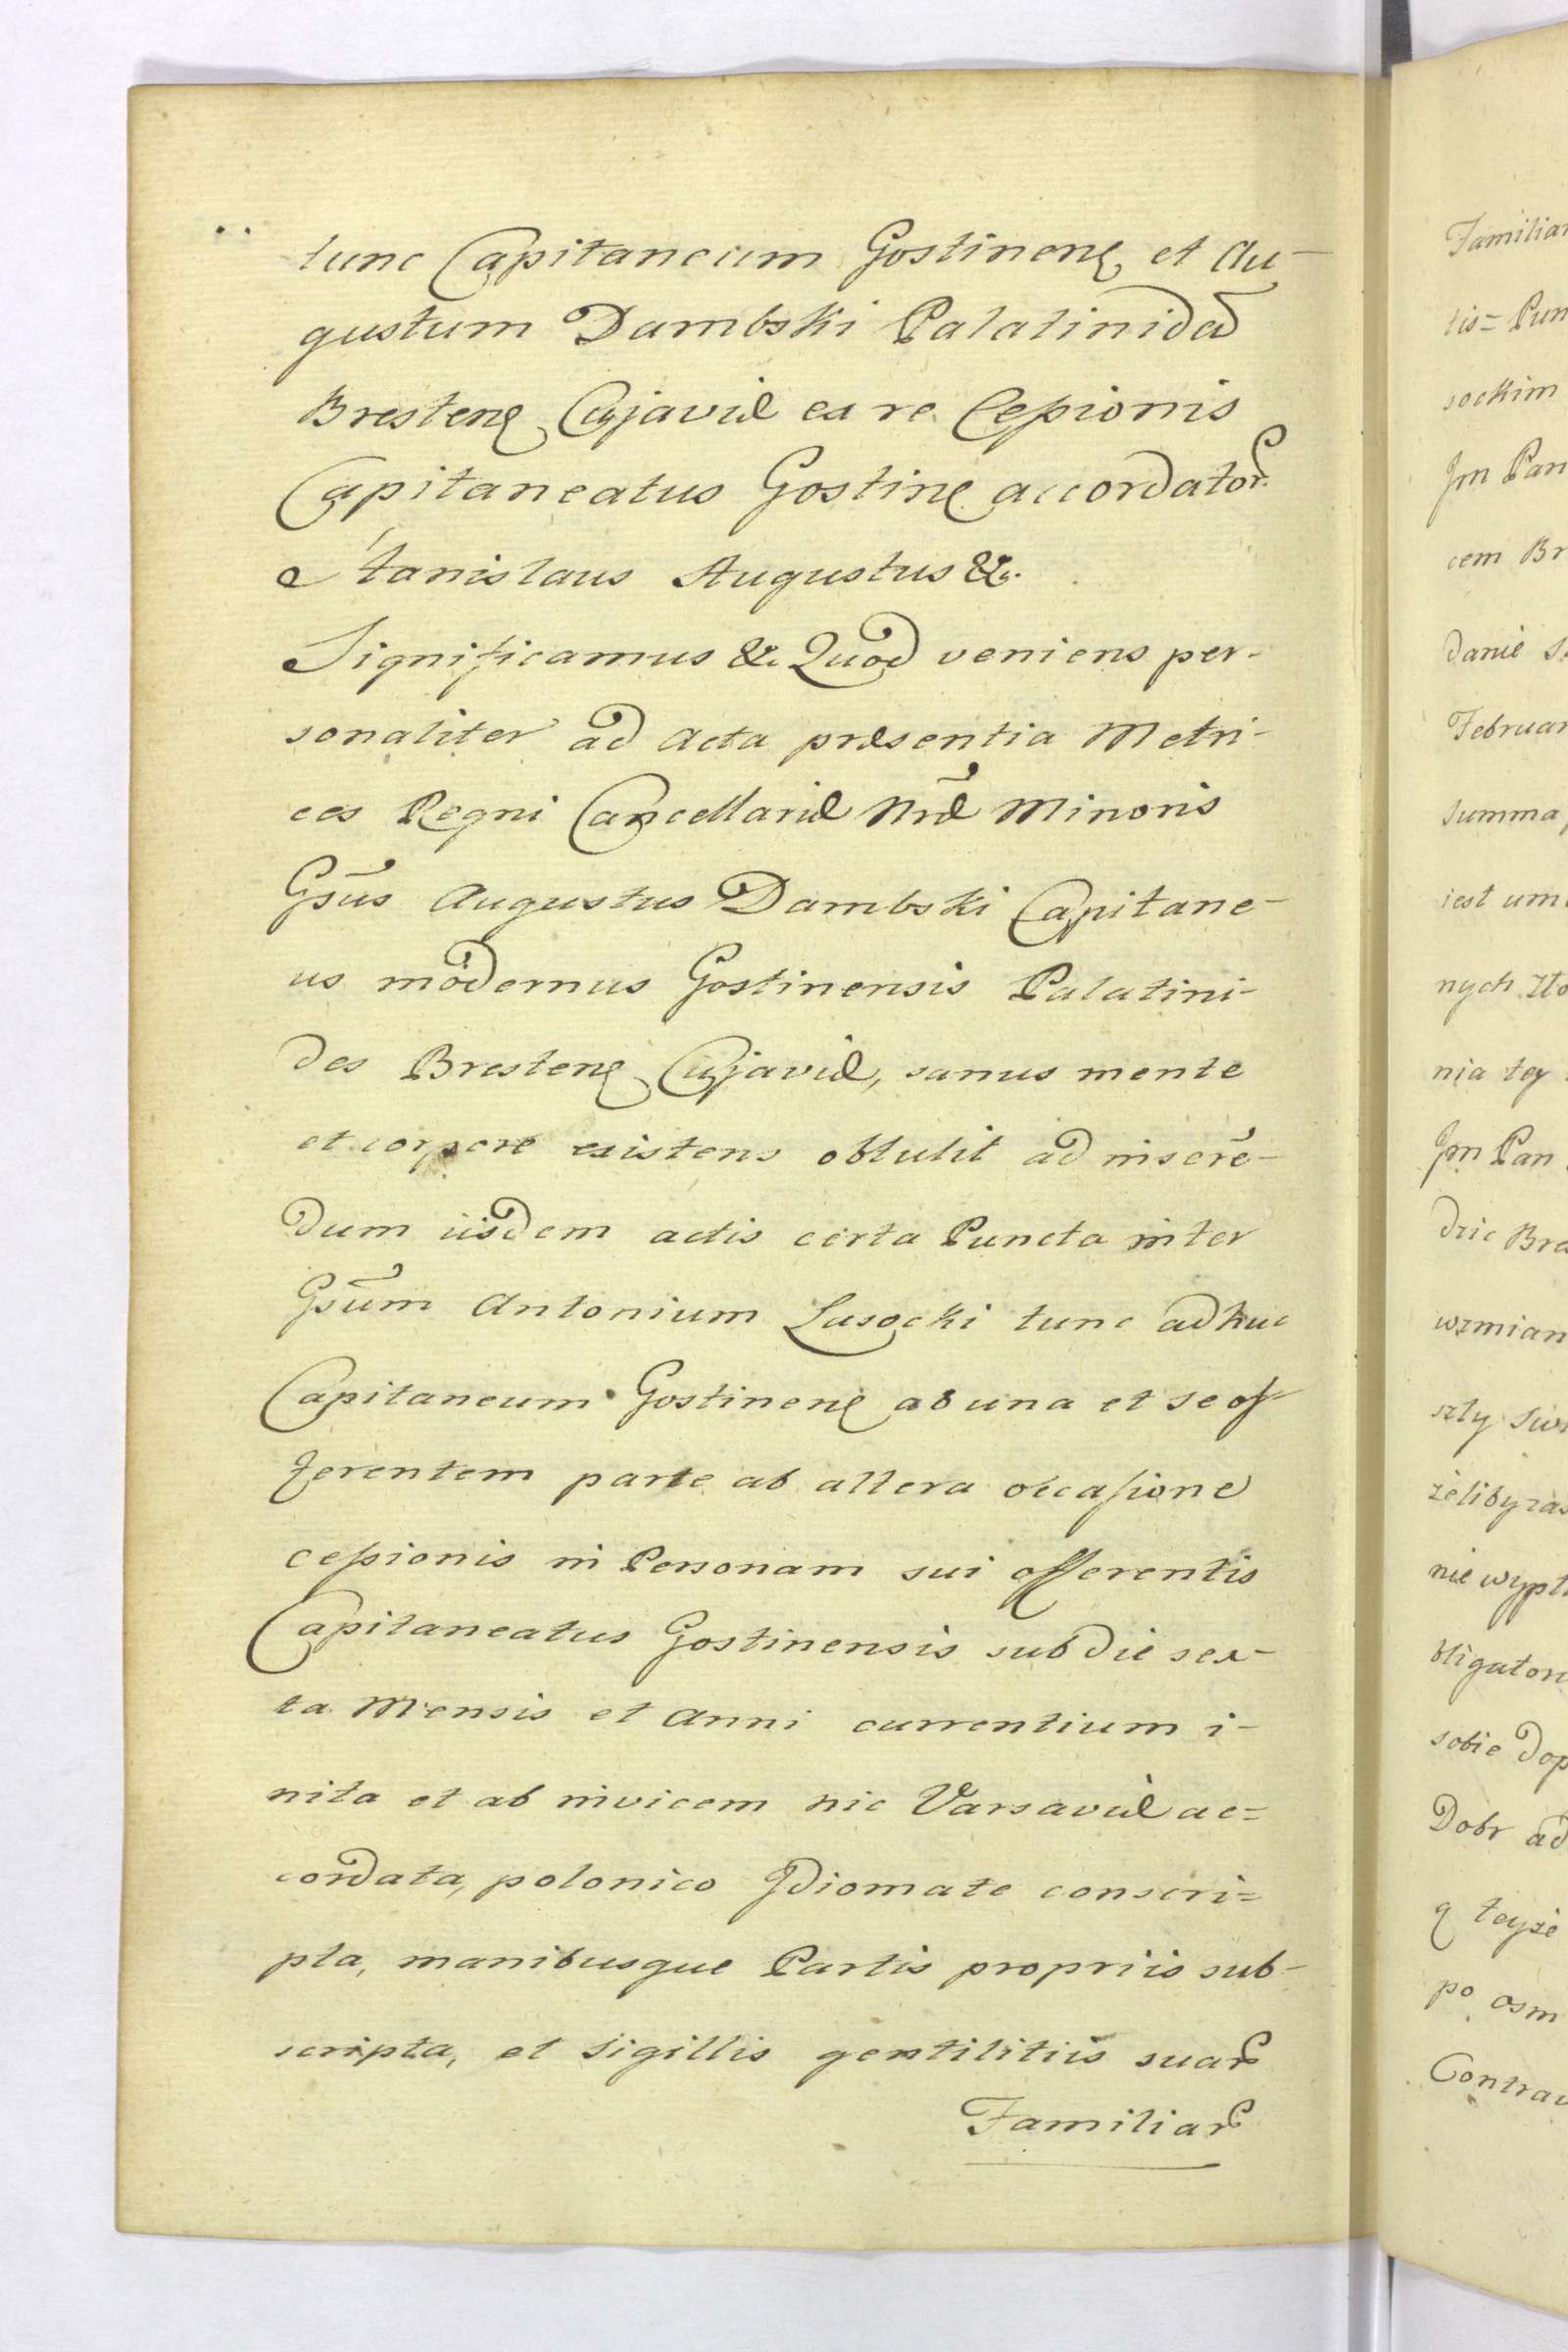 tunc Capitaneum Gostinenẽ et Au-
gustum Dambski Palatinidã
Brestenẽ Cujaviæ ex re Cessionis
Capitaneatus Gostinẽ accordator̃
Stanislaus Augustus &c.
Significamus &c. Quod veniens per-
sonaliter ad Acta præsentia Metri-
ces Regni Cancellariæ Nrãe Minoris
Gsũs Augustus Dambski Capitane-
us modernus Gostinensis Palatini-
des Brestenẽ Cujaviæ, sanus mente
et corpore existens obtulit ad inserẽ-
dum iisdem actis certa Puncta inter
Gsũm Antonium Lasocki tunc adhuc
Capitaneum Gostinenẽ ab una et se of-
ferentem parte ab altera occasione
cessionis in Personam sui offerentis
Capitaneatus Gostinensis sub die sex-
ta Mensis et Anni currentium i-
nita et ab invicem hic Varsaviæ ac=
cordata, polonico Idiomate conscri=
pta, manibusque Partis propriis sub-
scripta, et Sigillis gentilitiis suar̃
Familiar̃
Familiar
tis= Pun
sockim
Jm Pan
cem Br
danie
Februar
summa
iest um
nych
nia tey
Jm Pan
dzic Bre
wzmian
szty
żeliby zas
nie wypł
bligator
sobie dop
Dobr ad
q teyże
po osm
Contrav